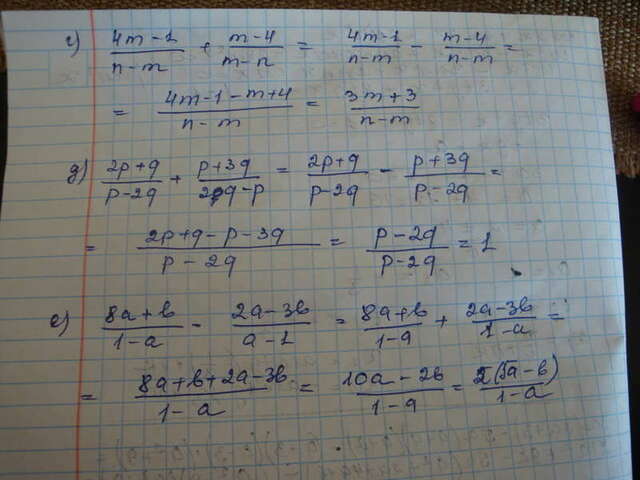 г) (4m-1)/(n-m) + (m-4)/(m-n) = (4m-1)/(n-m) - (m-4)/(n-m) =
= (4m-1-m+4)/(n-m) = (3m+3)/(n-m)
д) (2p+q)/(p-2q) + (p+3q)/(2q-p) = (2p+q)/(p-2q) - (p+3q)/(p-2q) =
= (2p+q-p-3q)/(p-2q) = (p-2q)/(p-2q) = 1
е) (8a+b)/(1-a) - (2a-3b)/(a-1) = (8a+b)/(1-a) + (2a-3b)/(1-a) =
= (8a+b+2a-3b)/(1-a) = (10a-2b)/(1-a) = 2(5a-b)/(1-a)